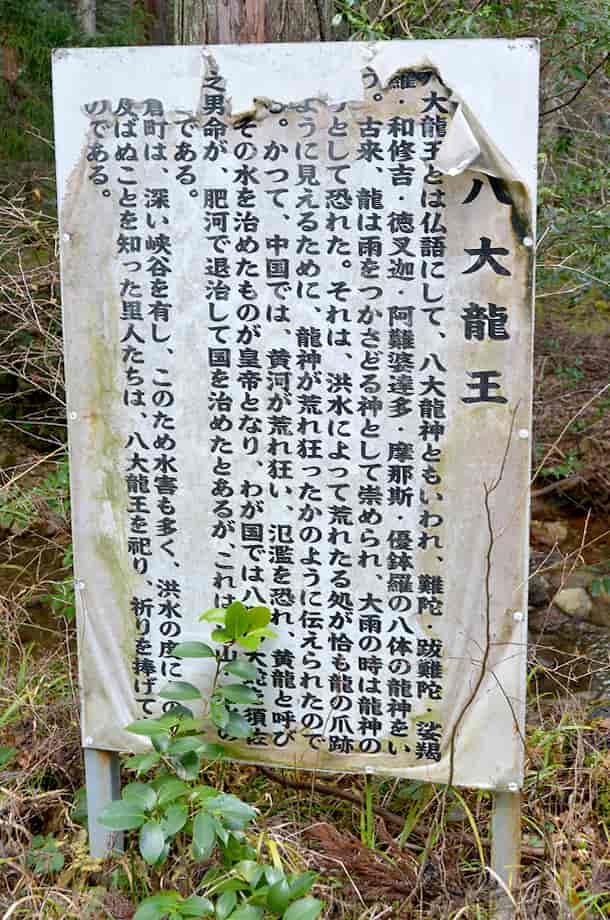 八大龍王
八大龍王とは仏語にして、八大龍神ともいわれ、難陀・跋難陀・娑羯
羅・和修吉・徳叉迦・阿難婆達多・摩那斯・優鉢羅の八体の龍神をい
う。古来、龍は雨をつかさどる神として崇められ、大雨の時は龍神の
として恐れた。それは、洪水によって荒れたる処が恰も龍の爪跡
ように見えるために、龍神が荒れ狂ったかのように伝えられたので
。かつて、中国では、黄河が荒れ狂い、氾濫を恐れ、黄龍と呼び
その水を治めたものが皇帝となり、わが国では八 大蛇を須佐
之男命が、肥河で退治して国を治めたとあるが、これは 山
である。
倉町は、深い峡谷を有し、このため水害も多く、洪水の度に
及ばぬことを知った里人たちは、八大龍王を祀り、祈りを捧げて
のである。